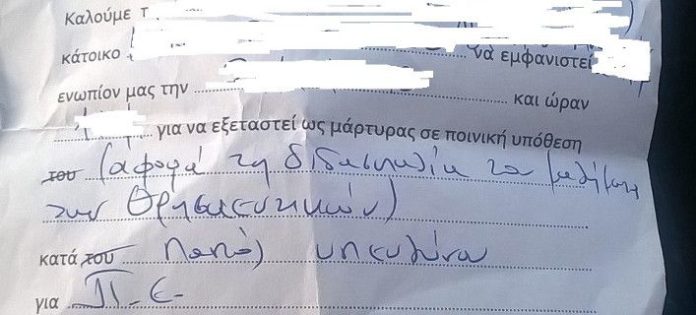 Καλούμε τ
κάτοικο να εμφανιστεί
ενωπίον μας την και ώραν
για να εξεταστεί ως μάρτυρας σε ποινική υπόθεση
του (αφορά τη διδασκαλία το μαθήματος
των Θρησκευτικών)
κατά του παντός υπευθύνου
για Π.Ε.